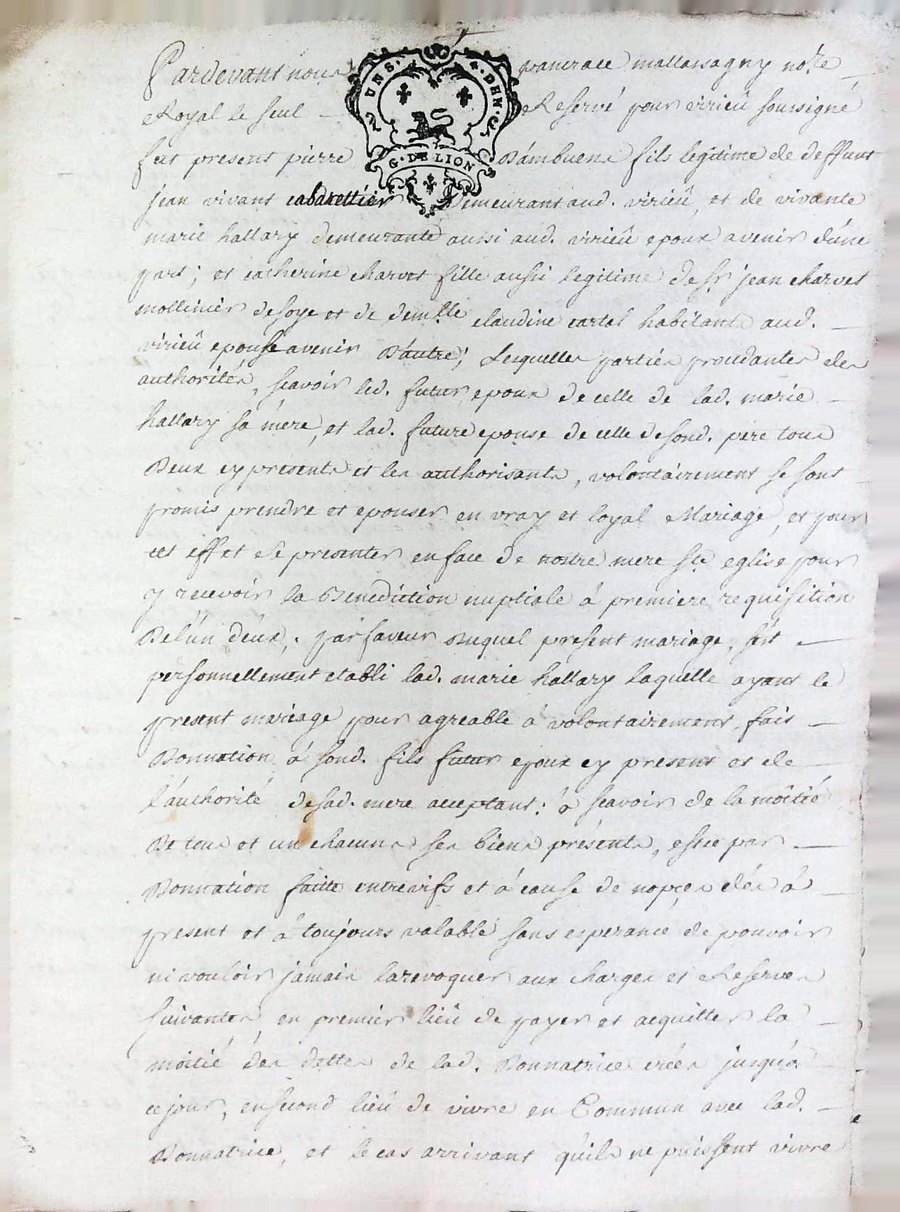 Pardevant nous pancrace mallassagny no.re
Royal le seul Reservé pour virieu soussigné
UN S. 4. DEN.
G. DE LION
fut present pierre Dambuens fils legitime de deffunt
jean vivant cabarettier demeurant aud. virieû, et de vivante
marie hallary demeurante aussi aud. virieû epoux avenir d'une
part; et catherine charvet fille aussi legitime de sr. jean charvet
mollinier de soye et de demlle claudine cartal habitants aud.
virieû epouse avenir D'autre; Lesquelles parties procedantes des
authorités, scavoir led. futur epoux de celle de lad. marie
hallary sa mere, et lad. future epouse de celle de sond. pere tous
Deux cy presents et les authorisants, volontairement se sont
promis prendre et epouser en vray et loyal Mariage, et pour
cet effet se presenter en face de nostre mere ste eglise pour
y recevoir la Benediction nuptiale à premiere requisition
De l'un d'eux; par faveur duquel present mariage, s'est
personnellement etabli lad. marie hallary laquelle ayant le
present mariage pour agreable a volontairement fait
Donnation à sond. fils futur epoux cy present et de
l'authorité de sad. mere acceptant: à scavoir de la moitié
De tous et un chacuns ses biens présents, estre par
Donnation faitte entrevifs et à cause de nopces dés à
present et à toujours valable sans esperance de pouvoir
ni vouloir jamais la revoquer aux charges et Reserves
suivantes, en premier lieû de payer et acquitter la
moitié des dettes de lad. Donnatrice créés jusqu'à
ce jour, en second lieû de vivre en Commun avec lad.
Donnatrice, et le cas arrivant qu'ils ne puissent vivre